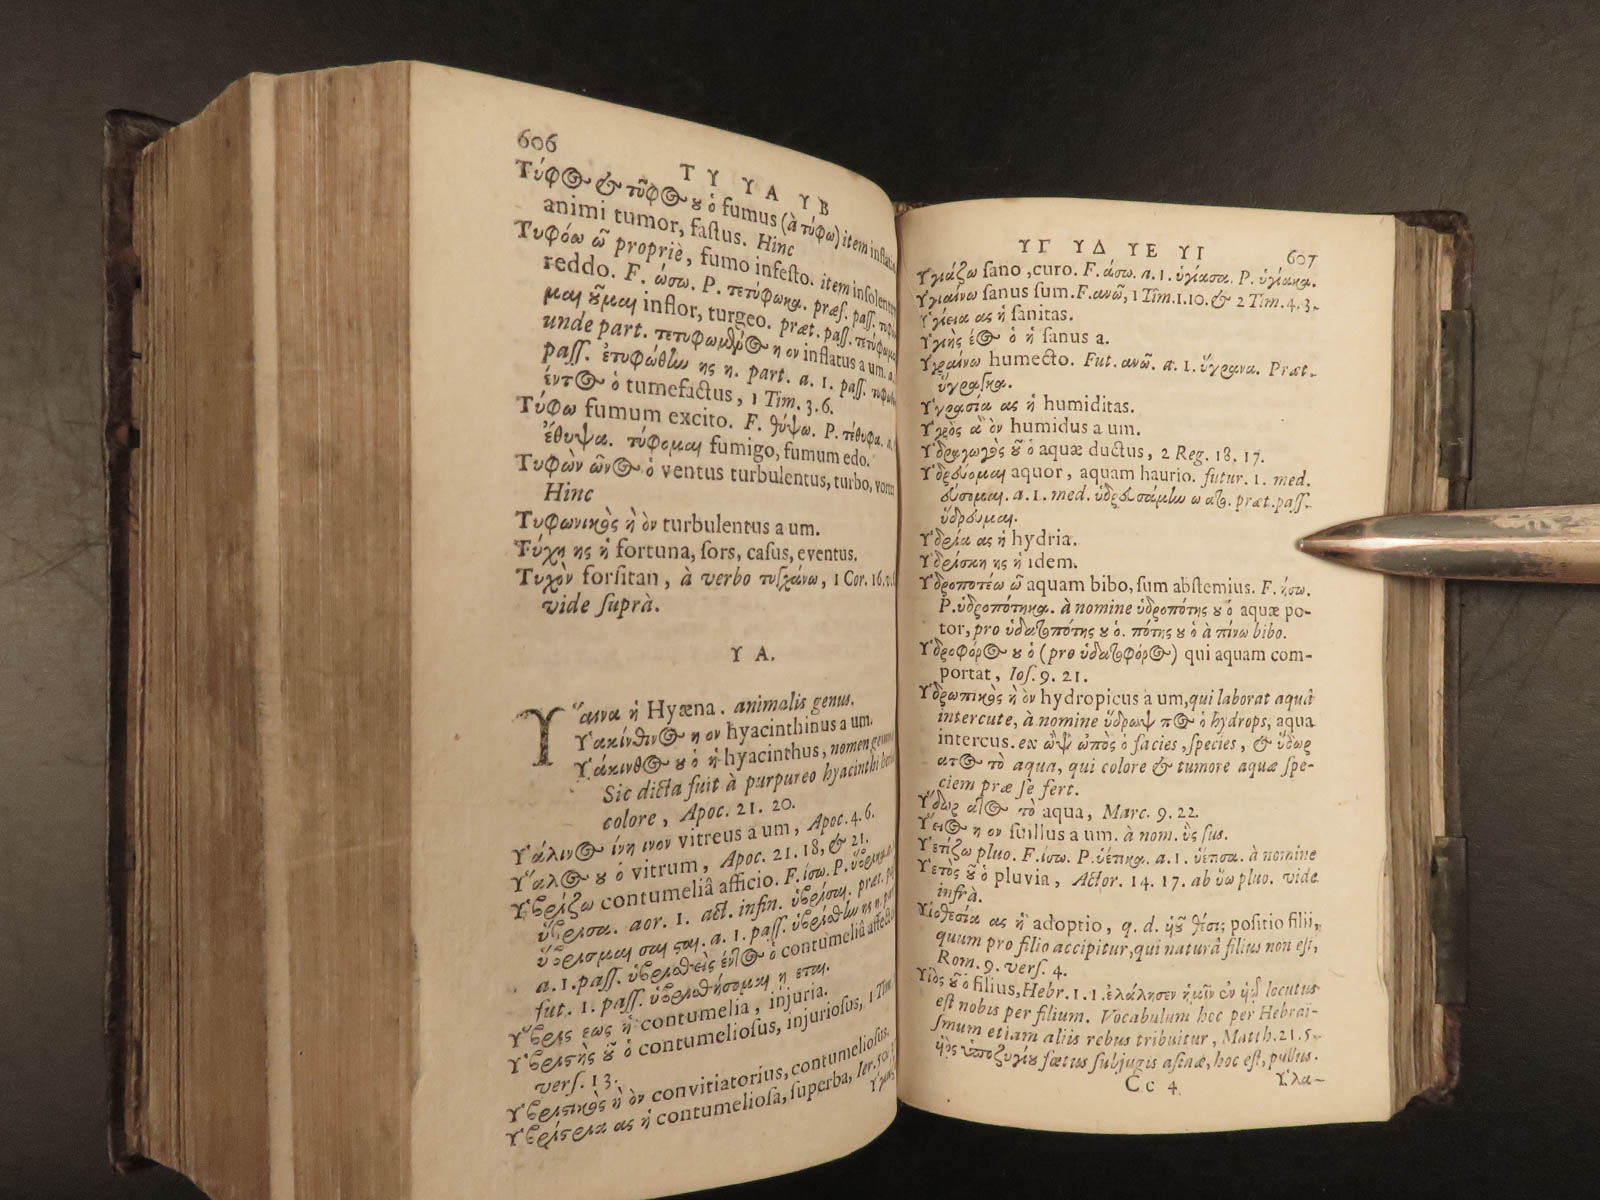 606
ΤΥ ΥΑ ΥΒ
Τύφος & τῦφος ου ὁ fumus (à τύφω) item inflatio
animi tumor, faſtus. Hinc
Τυφόω ῶ propriè, fumo infeſto. item inſolentem
reddo. F. ώσω. P. τετύφωκα. præſ. paſſ. τυφόο-
μαι οῦμαι inflor, turgeo. præt. paſſ. τετύφωμαι
unde part. τετυφωμένος η ον inflatus a um. a. 1.
paſſ. ἐτυφώθην ης η. part. a. 1. paſſ. τυφωθεὶς
έντος ὁ tumefactus, 1 Tim. 3. 6.
Τύφω fumum excito. F. θύψω. P. τέθυφα. a. 1.
ἔθυψα. τύφομαι fumigo, fumum edo.
Τυφὼν ῶνος ὁ ventus turbulentus, turbo, vortex
Hinc
Τυφωνικὸς ὴ ὸν turbulentus a um.
Τύχη ης ἡ fortuna, ſors, caſus, eventus.
Τυχὸν forſitan, à verbo τυγχάνω, 1 Cor. 16. v. 6.
vide ſuprà.
ΥΑ.
Ὕαινα ἡ Hyæna. animalis genus.
Ὑακίνθινος η ον hyacinthinus a um.
Ὑάκινθος ου ὁ ἡ hyacinthus, nomen gemmæ
Sic dicta fuit à purpureo hyacinthi herbæ
colore, Apoc. 21. 20.
Ὑάλινος ίνη ινον vitreus a um, Apoc. 4. 6.
Ὕαλος ου ὁ vitrum, Apoc. 21. 18, & 21.
Ὑβρίζω contumeliâ afficio. F. ίσω. P. ὕβρικα. a. 1.
ὕβρισα. aor. 1. act. infin. ὑβρίσαι. præt. paſſ.
ὕβρισμαι σαι ται. a. 1. paſſ. ὑβρίσθην ης η. part.
a. 1. paſſ. ὑβρισθεὶς έντος ὁ contumeliâ affectus
fut. 1. paſſ. ὑβρισθήσομαι η εται.
Ὕβρις εως ἡ contumelia, injuria.
Ὑβριστὴς οῦ ὁ contumelioſus, injurioſus, 1 Tim.
verſ. 13.
Ὑβριστικὸς ὴ ὸν convitiatorius, contumelioſus,
Ὑβρίστρια ας ἡ contumelioſa, ſuperba, Ier. 50.
ΥΓ ΥΔ ΥΕ ΥΙ
607
Ὑγιάζω ſano, curo. F. άσω. a. 1. ὑγίασα. P. ὑγίακα.
Ὑγιαίνω ſanus ſum. F. ανῶ, 1 Tim. 1. 10. & 2 Tim. 4. 3.
Ὑγίεια ας ἡ ſanitas.
Ὑγιὴς έος ὁ ἡ ſanus a.
Ὑγραίνω humecto. Fut. ανῶ. a. 1. ὕγρανα. Præt.
ὕγραγκα.
Ὑγρασία ας ἡ humiditas.
Ὑγρὸς ὰ ὸν humidus a um.
Ὑδραγωγὸς οῦ ὁ aquæ ductus, 2 Reg. 18. 17.
Ὑδρεύομαι aquor, aquam haurio. futur. 1. med.
εύσομαι. a. 1. med. ὑδρευσάμην ω ατο. præt. paſſ.
ὕδρευμαι.
Ὑδρία ας ἡ hydria.
Ὑδρίσκη ης ἡ idem.
Ὑδροποτέω ῶ aquam bibo, ſum abſtemius. F. ήσω.
P. ὑδροπότηκα. à nomine ὑδροπότης ου ὁ aquæ po-
tor, pro ὑδατοπότης ου ὁ. πότης ου ὁ à πίνω bibo.
Ὑδροφόρος ου ὁ (pro ὑδατοφόρος) qui aquam com-
portat, Ioſ. 9. 21.
Ὑδρωπικὸς ὴ ὸν hydropicus a um, qui laborat aquâ
intercute, à nomine ὕδρωψ πος ὁ hydrops, aqua
intercus. ex ὢψ ὠπὸς ὁ facies, ſpecies, & ὕδωρ
ατος τὸ aqua, qui colore & tumore aquæ ſpe-
ciem præ ſe fert.
Ὕδωρ ατος τὸ aqua, Marc. 9. 22.
Ὕειος η ον ſuillus a um. à nom. ὗς ſus.
Ὑετίζω pluo. F. ίσω. P. ὑέτικα. a. 1. ὑέτισα. à nomine
Ὑετὸς οῦ ὁ pluvia, Actor. 14. 17. ab ὕω pluo. vide
infrà.
Υἱοθεσία ας ἡ adoptio, q. d. υἱοῦ θέσις poſitio filii,
quum pro filio accipitur, qui naturâ filius non eſt,
Rom. 9. verſ. 4.
Υἱὸς οῦ ὁ filius, Hebr. 1. 1. ἐλάλησεν ἡμῖν ἐν υἱῷ locutus
eſt nobis per filium. Vocabulum hoc per Hebraï-
ſmum etiam aliis rebus tribuitur, Matth. 21. 5.
υἱὸς ὑποζυγίου fœtus ſubjugis aſinæ, hoc eſt, pullus.
Cc 4
Ὑλα-